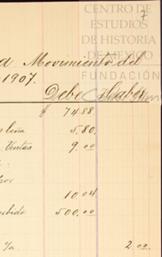 7
CENTRO DE
ESTUDIOS
DE HISTORIA
DE MÉXICO
FUNDACIÓN
Movimiento del
1907.
Debe Haber
$ 74.88
leña 5.80
Ventas 9.00
10.04
500.00
2.00